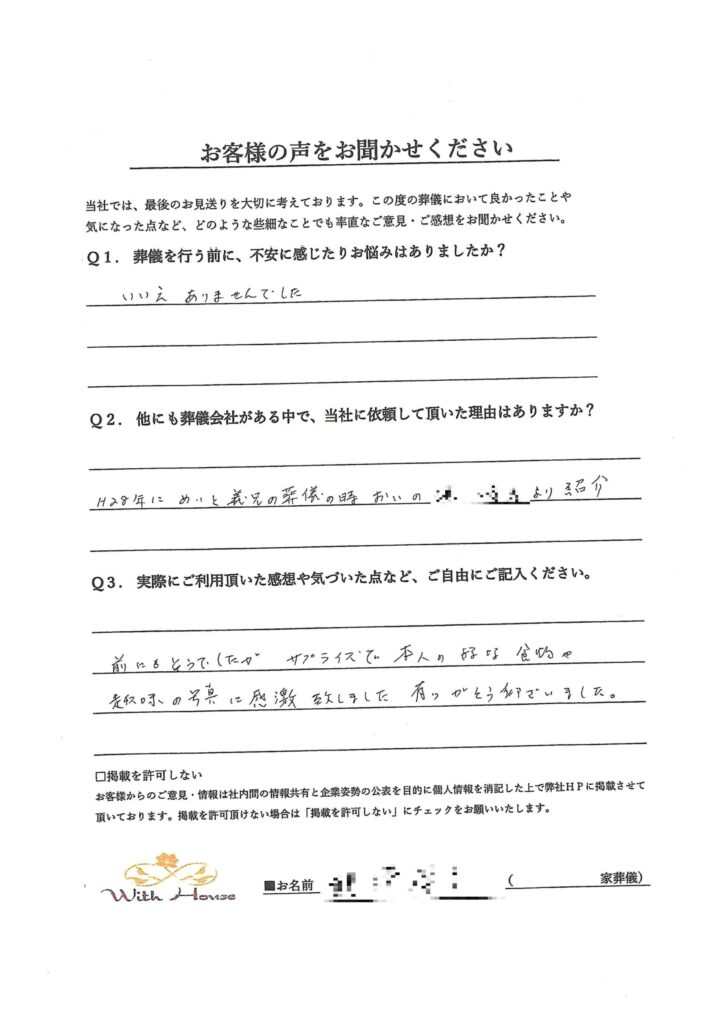 お客様の声をお聞かせください
当社では、最後のお見送りを大切に考えております。この度の葬儀において良かったことや
気になった点など、どのような些細なことでも率直なご意見・ご感想をお聞かせください。
Q1. 葬儀を行う前に、不安に感じたりお悩みはありましたか？
いいえ ありませんでした
Q2. 他にも葬儀会社がある中で、当社に依頼して頂いた理由はありますか？
H28年に めいと義兄の葬儀の時 おいの より紹介
Q3. 実際にご利用頂いた感想や気づいた点など、ご自由にご記入ください。
前にもそうでしたが サプライズで 本人の 好な 食物や
趣味の写真に感激 致しました 有りがとう御ざいました。
□掲載を許可しない
お客様からのご意見・情報は社内間の情報共有と企業姿勢の公表を目的に個人情報を消記した上で弊社HPに掲載させて
頂いております。掲載を許可頂けない場合は「掲載を許可しない」にチェックをお願いいたします。
With House
■お名前
( 家葬儀)